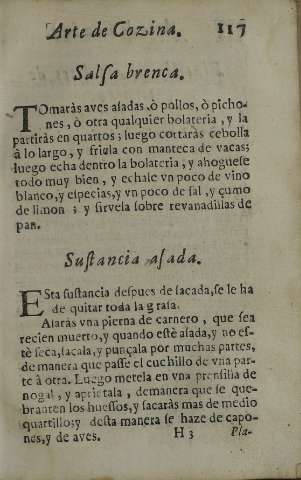 Arte de Cozina. 117
Salsa brenca.
TOmaràs aves asadas, ò pollos, ò picho-
nes, ò otra qualquier bolateria, y la
partiràs en quartos; luego cortaràs cebolla
à lo largo, y friela con manteca de vacas;
luego echa dentro la bolateria, y ahoguese
todo muy bien, y echale vn poco de vino
blanco, y especias, y vn poco de sal, y çumo
de limon; y sirvela sobre revanadillas de
pan.
Sustancia asada.
ESta sustancia despues de sacada, se le ha
de quitar toda la grasa.
Asaràs vna pierna de carnero, que sea
recien muerto, y quando estè asada, y no es-
tè seca, sacala, y punçala por muchas partes,
de manera que passe el cuchillo de vna par-
te à otra. Luego metela en vna prensilla de
nogal, y aprietala, demanera que se que-
branten los huessos, y sacaràs mas de medio
quartillo; y desta manera se haze de capo-
nes, y de aves. H 3 Pla-